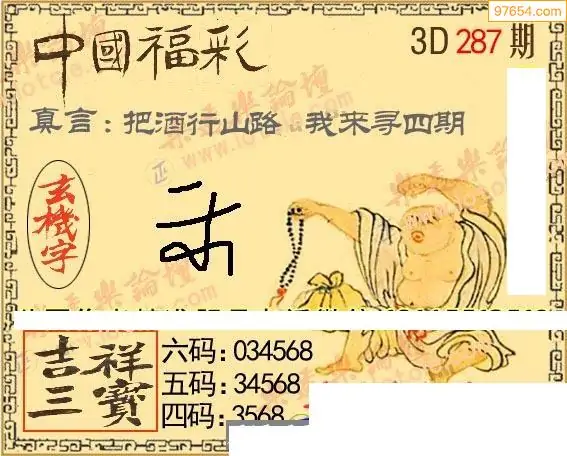 97654.com
中國福彩
3D 287 期
真言：把酒行山路 我来寻四期
玄機字
吉祥三寶
六码：034568
五码：34568
四码：3568